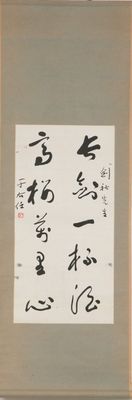 先生
長劍一杯酒
高樓萬里心
于右任